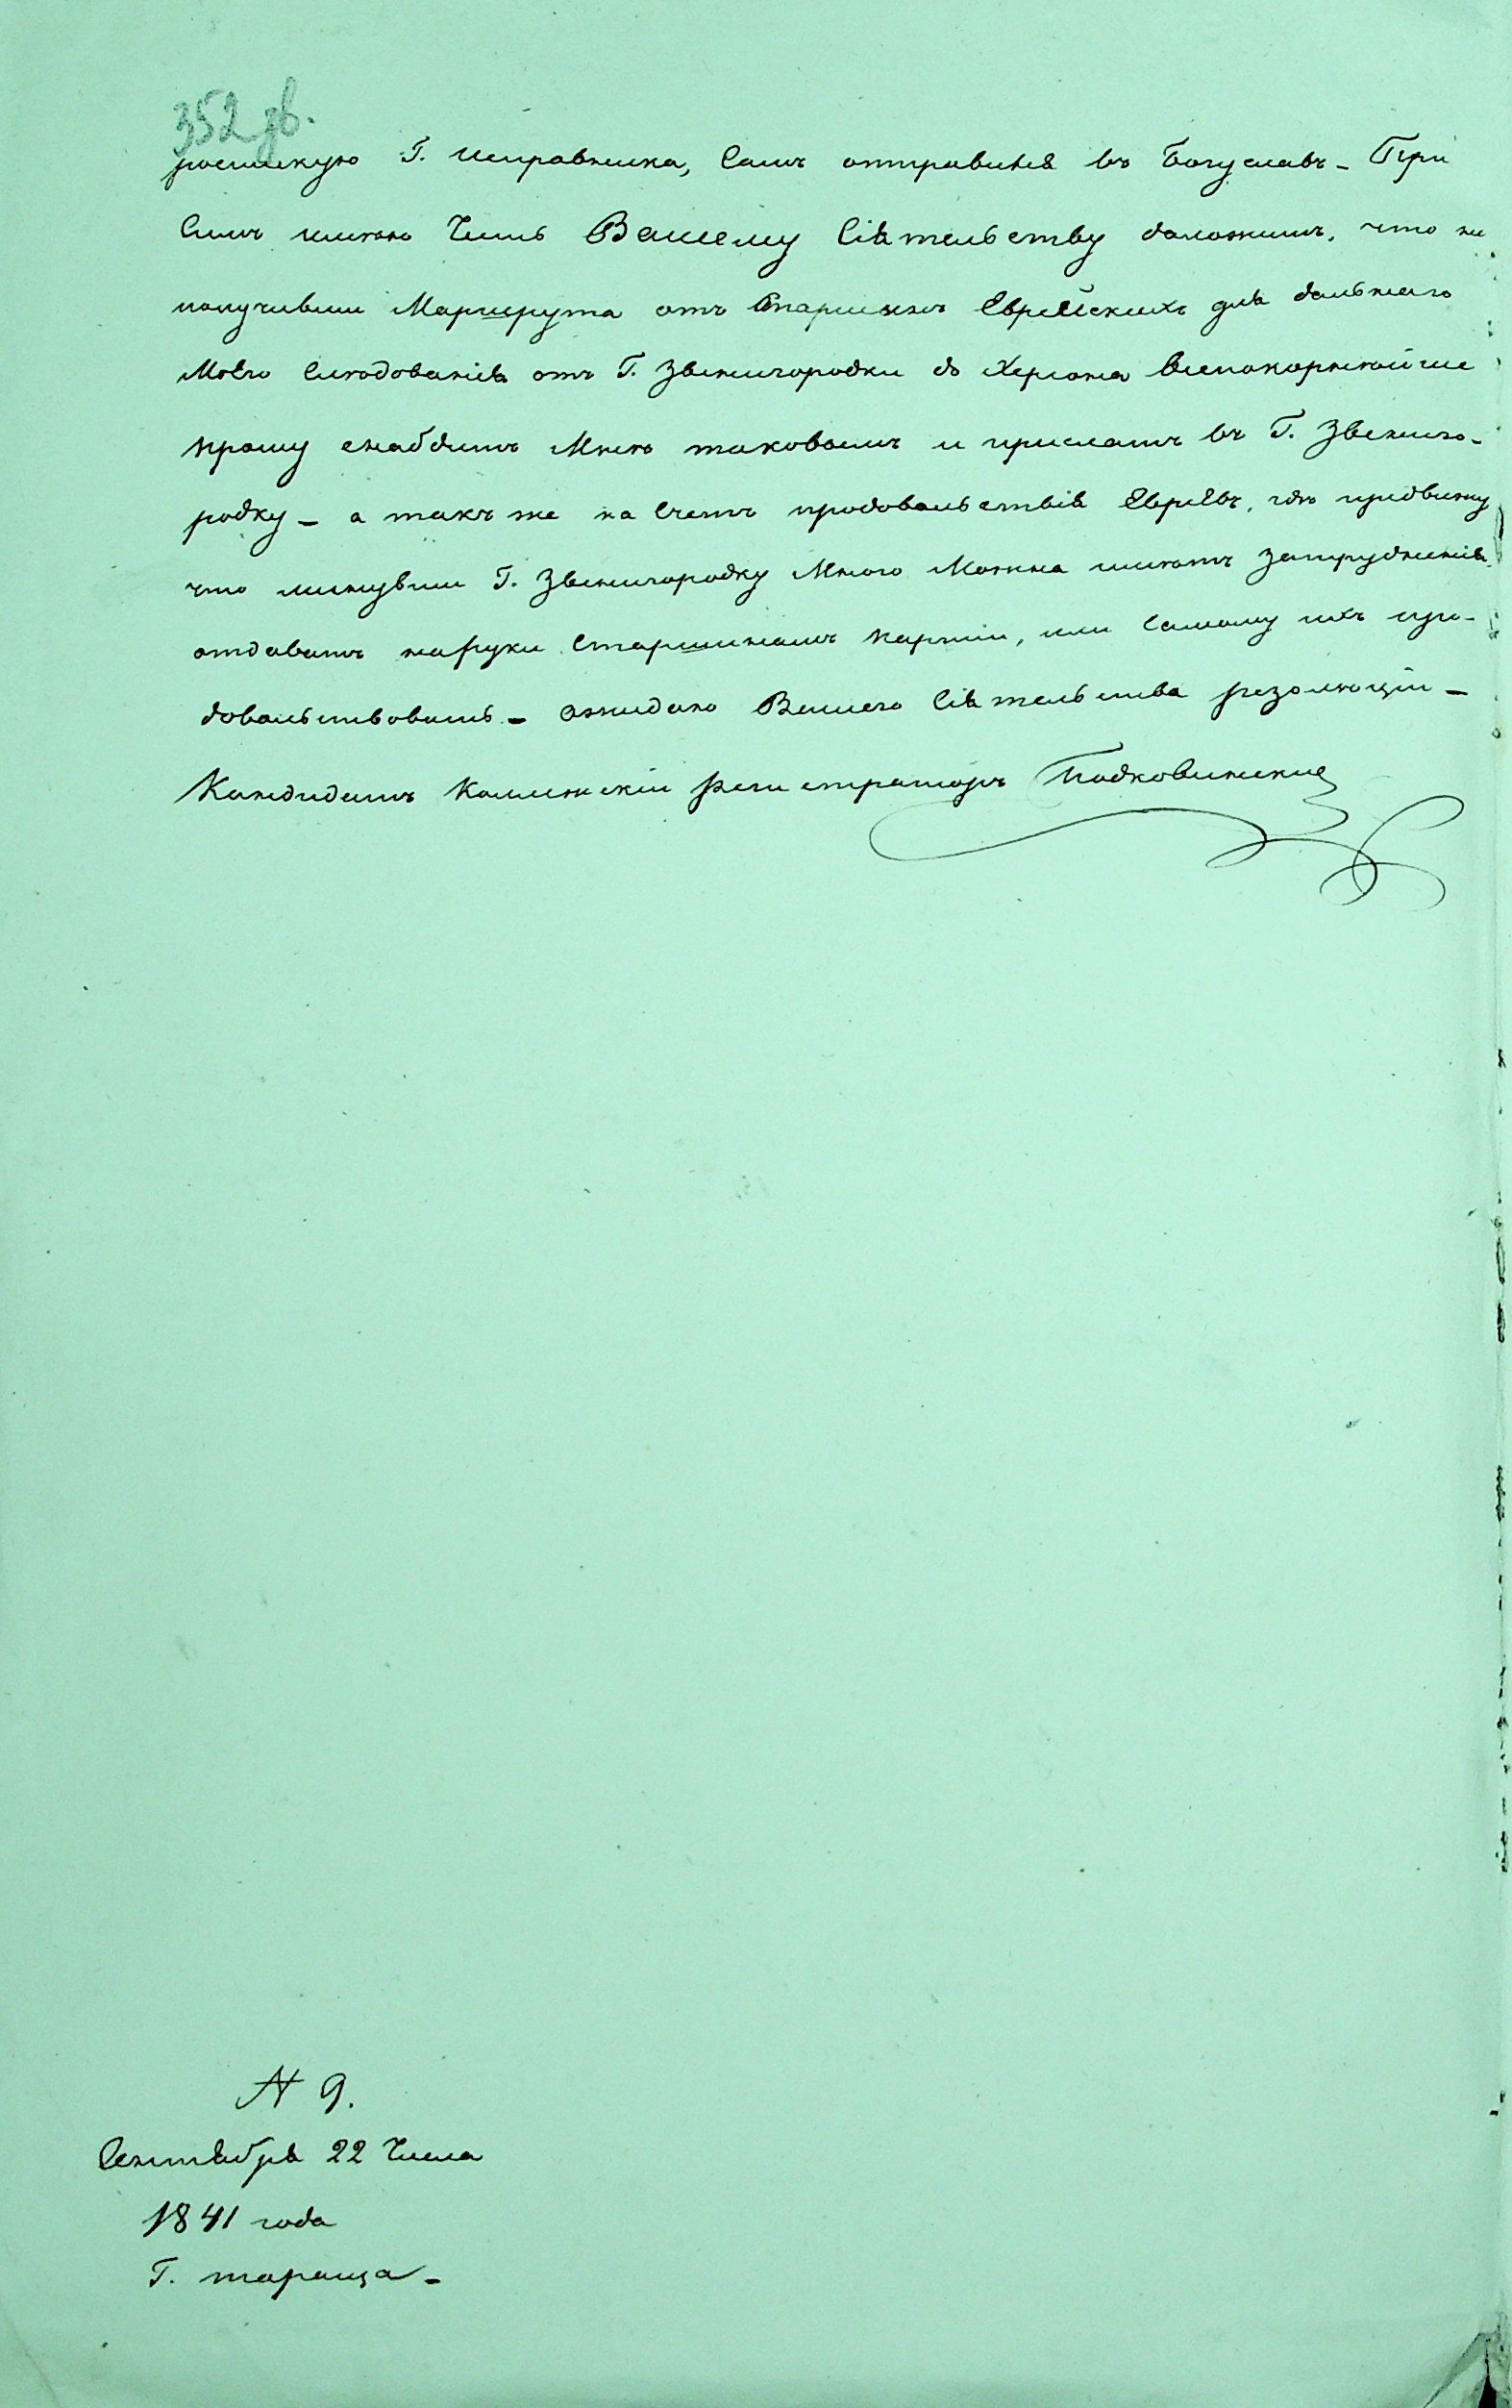 352 зв.
росписку Г. исправника, Самъ отправился въ Богуславъ – При
Семъ имею Честь Вашему Сіятельству доложить, что не
получивши Маршрута отъ Старшинъ Еврейскихъ для дальнего
Моего Следованія отъ Г. Звенигородки до Херсона Всепокорнейше
прошу снабдить Мене таковымъ и прислать въ Г. Звениго-
родку – а такъ же на Счетъ продовольствія Евреевъ, ибо предвижу
что минувши Г. Звенигородку Много Можна иметь затрудненія
отдавать наруки Старшинамъ партіи, или Самому ихъ про-
довольствовать – ожидаю Вашего Сіятельства резолюціи –
Кандидатъ Колежскій регистраторъ Подковинскій
N 9.
Сентября 22 Числа
1841 года
Г. тараща –